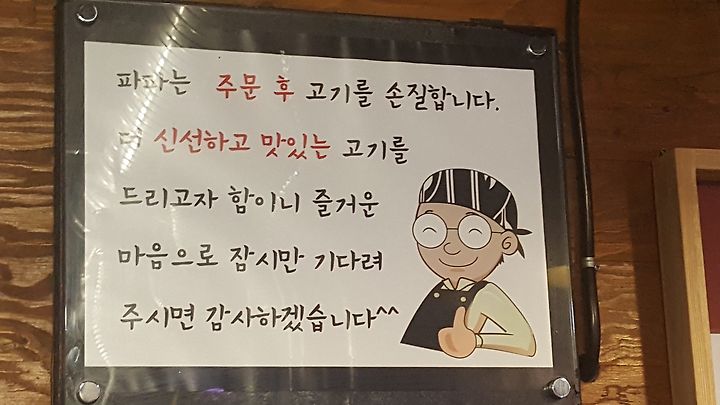 파파는 주문 후 고기를 손질합니다.
더 신선하고 맛있는 고기를
드리고자 함이니 즐거운
마음으로 잠시만 기다려
주시면 감사하겠습니다^^